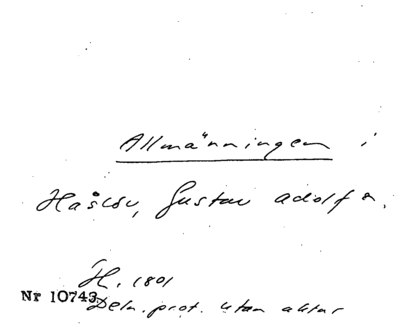 Allmänningen i
Håslöv, Gustav Adolf s.
H. 1801
Nr 10743
Deln. prot. utan aktnr